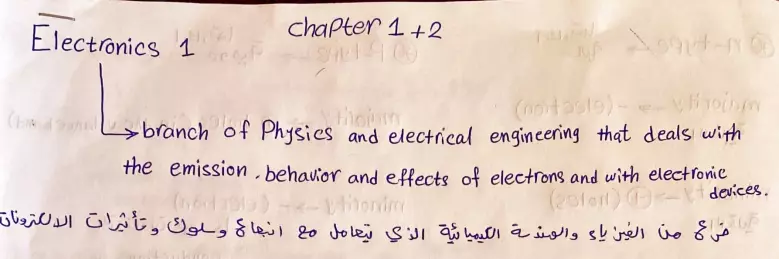 Electronics 1
chapter 1 + 2
branch of Physics and electrical engineering that deals with
the emission. behavior and effects of electrons and with electronic
devices.
فرع من الفيزياء والهندسة الكيميائية الذي يتعامل مع انبعاث وسلوك وتأثيرات الالكترونات